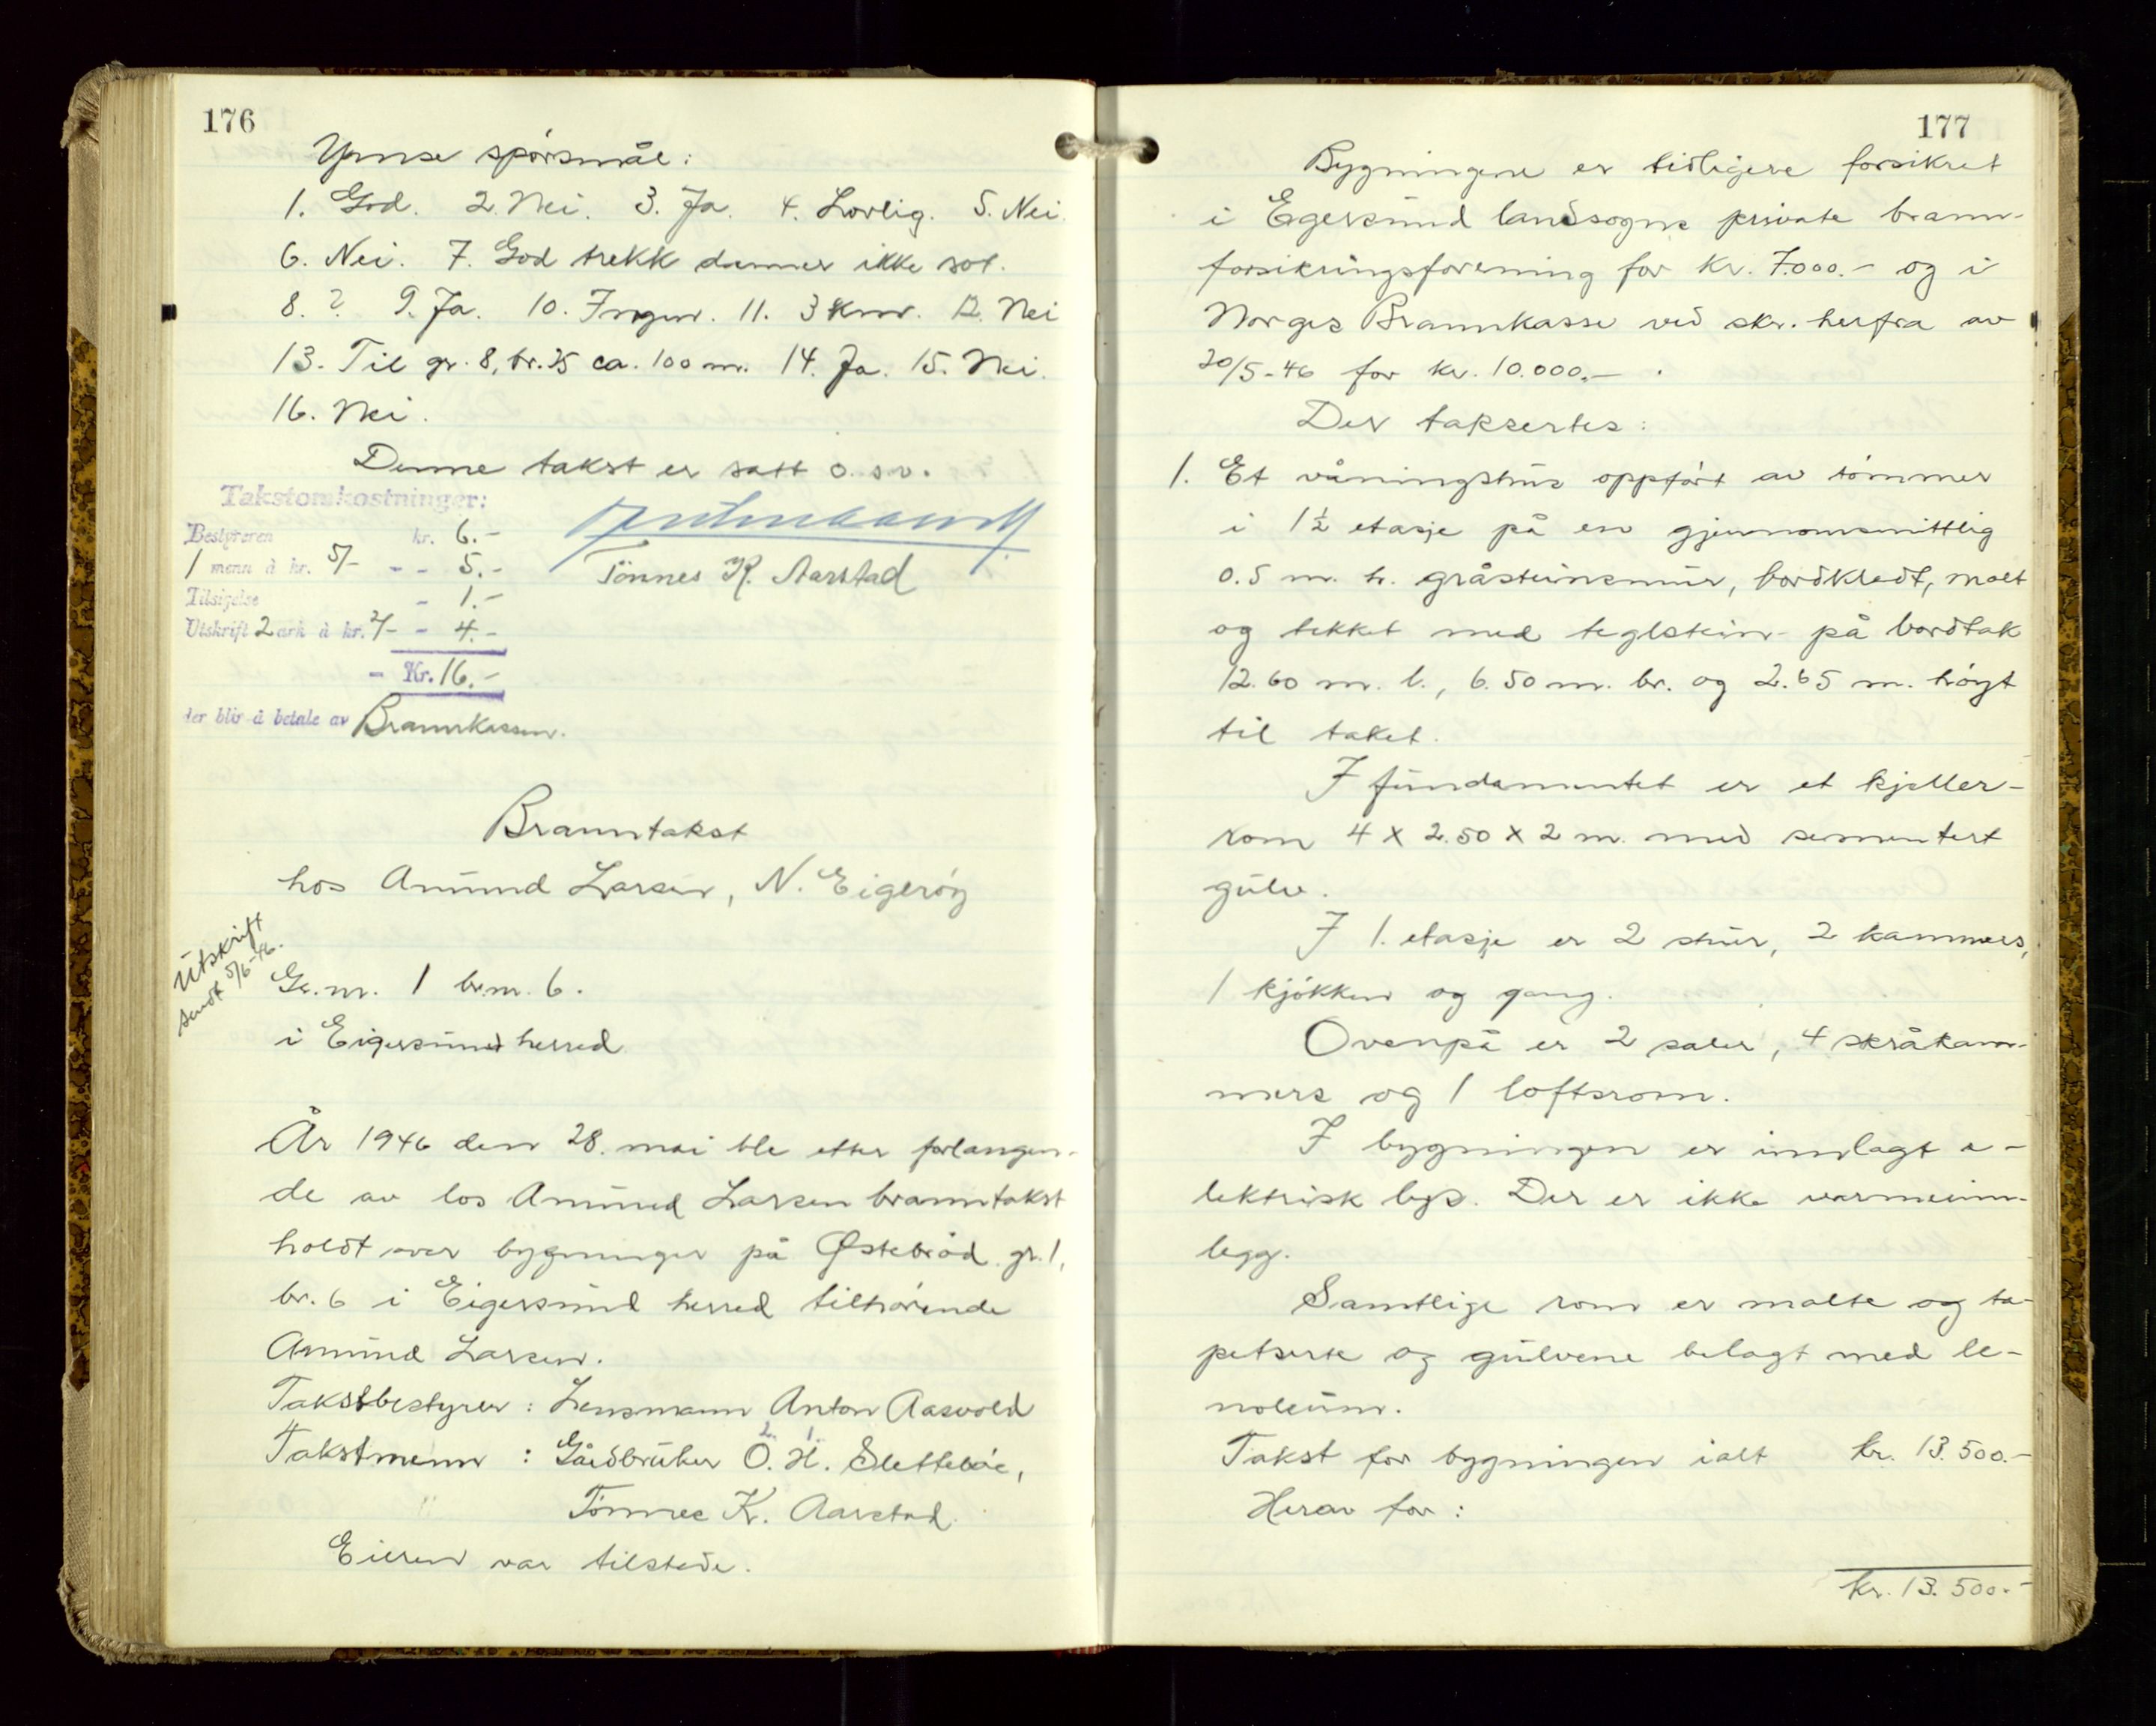 176
Ymse spörsmål:
1. God. 2. Nei. 3. Ja. 4. Lovlig. 5. Nei.
6. Nei. 7. God trekk danner ikke sot.
8. ? 9. Ja. 10. Ingen. 11. 3 km. 12. Nei
13. Til gr. 8, br. 25 ca. 100 m. 14. Ja. 15. Nei.
16. Nei.
Denne takst er satt o.s.v.
Takstomkostninger:
Bestyreren kr. 6.-
1 menn à kr. 5/- - - 5.-
Tilsigelse - 1.-
Utskrift 2 ark à kr. 2/- - 4.-
- Kr. 16.-
der blir å betale av Brannkassen.
Tönnes K. Aarstad
Branntakst
hos Amund Larsen, N. Eigeröy
Utskrift
sendt 5/6-46.
Gr.nr. 1 br.nr. 6.
i Eigersund herred
År 1946 den 28. mai ble etter forlangen-
de av los Amund Larsen branntakst
holdt over bygninger på Østebröd gr. 1,
br. 6 i Eigersund herred tilhörende
Amund Larsen.
Takstbestyrer: Lensmann Anton Aasvold
Takstmenn: Gårdbruker O. H. Sletteböe,
" Tönnes K. Aarstad.
Eieren var tilstede.
177
Bygningene er tidligere forsikret
i Egersund landsogns private brann-
forsikringsforening for kr. 7.000.- og i
Norges Brannkasse ved skr. herfra av
20/5-46 for kr. 10.000.-.
Der taksertes:
1. Et våningshus oppfört av tömmer
i 1½ etasje på en gjennomsnittlig
0.5 m. h. gråsteinsmur, bordkledt, malt
og tekket med teglstein på bordtak
12.60 m. l., 6.50 m. br. og 2.65 m. höyt
til taket.
I fundamentet er et kjeller-
rom 4 x 2.50 x 2 m. med sementert
gulv.
I 1. etasje er 2 stuer, 2 kammers,
1 kjökken og gang.
Ovenpå er 2 saler, 4 skråkam-
mers og 1 loftsrom.
I bygningen er innlagt e-
lektrisk lys. Der er ikke varmeinn-
legg.
Samtlige rom er malte og ta-
petserte og gulvene belagt med le-
noleum.
Takst for bygningen ialt kr. 13.500.-
Herav for:
kr. 13.500.-